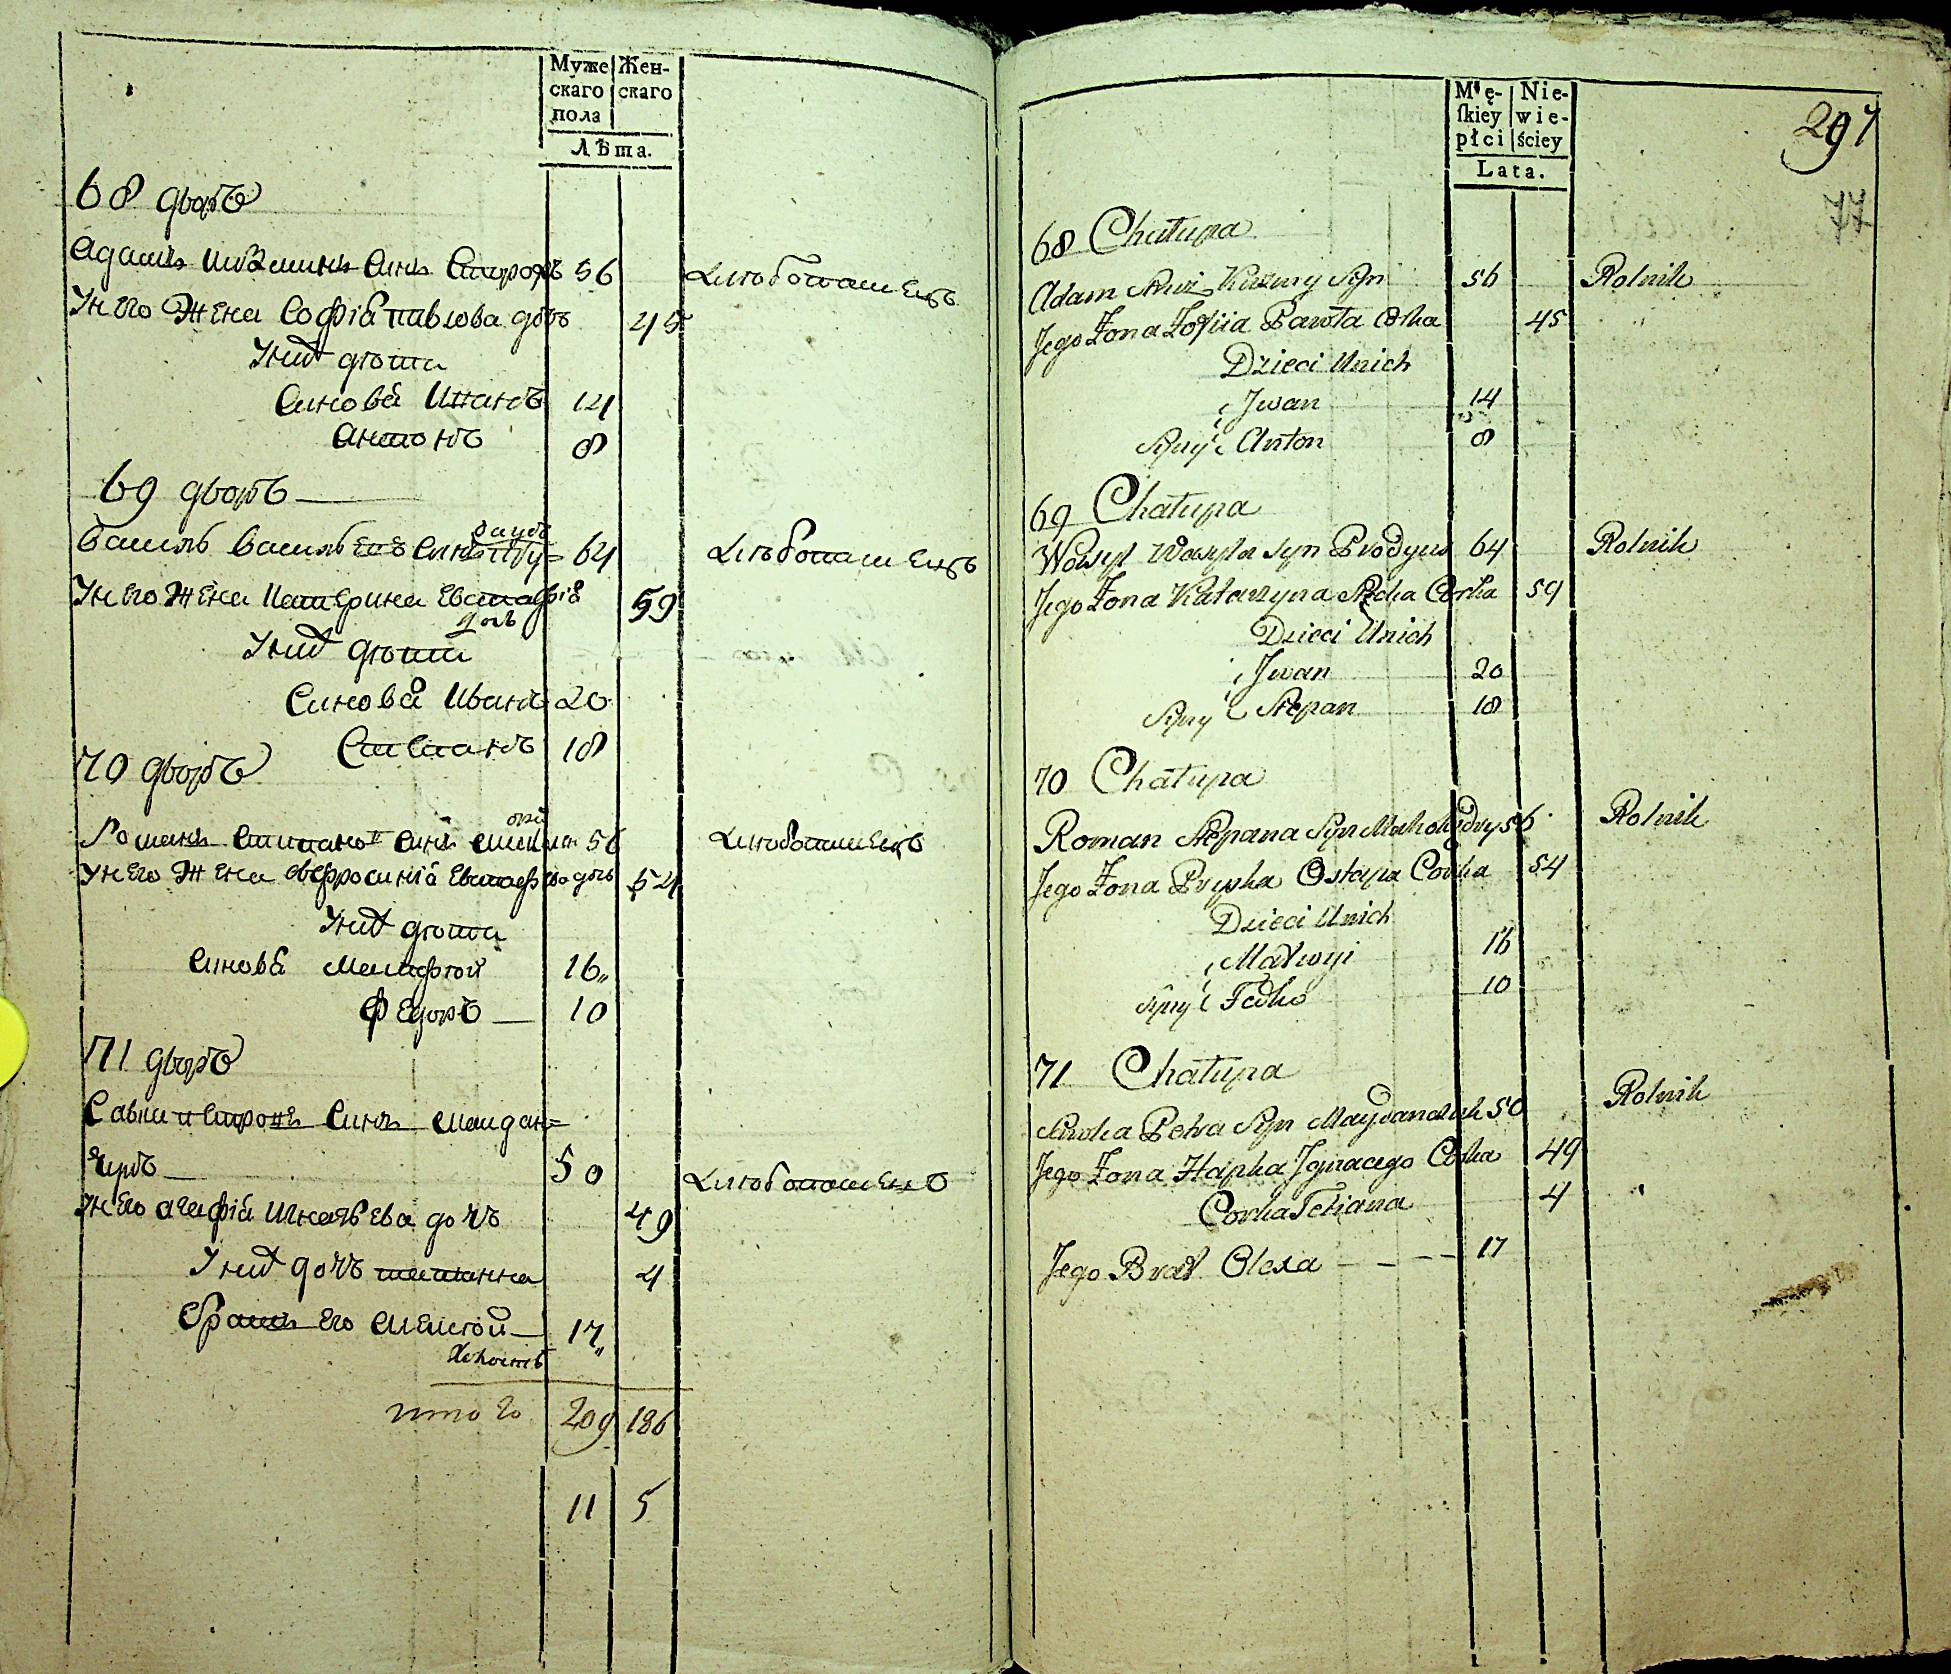 Муже Жен-
скаго скаго
пола
Лѣта.
68 дворъ
Адамъ Синъ 56 Хлѣбопашецъ
У него Жена Софія Павлова дочь 45
У них дѣти
Синовя Иванъ 14
Антонъ 8
69 дворъ
Василь Василь Синъ 64 Хлѣбопашецъ
У него Жена Катерина Евстафія 59
дочь
У них дѣти
Синовя Иванъ 20
Степанъ 18
70 дворъ
Романъ Степано Синъ 56 Хлѣбопашецъ
У него Жена Ефросинія Евстафіева дочь 54
У них дѣти
Синовя Матфѣй 16
Федоръ 10
71 дворъ
Савка Синъ Майдан=
чукъ 50 Хлѣбопашецъ
У него Агафія Игнатѣева дочь 49
У них дочъ татіанна 4
братъ его Алексѣй 17
итого 209 186
11 5
Mę- Nie-
skiey wie-
płci ściey
Lata.
297
77
68 Chałupa
Adam Kuzmy Syn 56 Rolnik
Jego Żona Zofiia Pawła Corka 45
Dzieci Unich
Jwan 14
Syny Anton 8
69 Chałupa
Wasyl Wasyla Syn 64 Rolnik
Jego Żona Katarzyna Corka 59
Dzieci Unich
Jwan 20
Syny Stepan 18
70 Chałupa
Roman Stepana Syn 56 Rolnik
Jego Żona Pryska Ostapa Corka 54
Dzieci Unich
Matwyi 16
Syny Fedko 10
71 Chałupa
Sawka Petra Syn Maydanczuk 50 Rolnik
Jego Żona Hapka Jgnacego Corka 49
Corka Tetiana 4
Jego Brat Olexa - - - 17